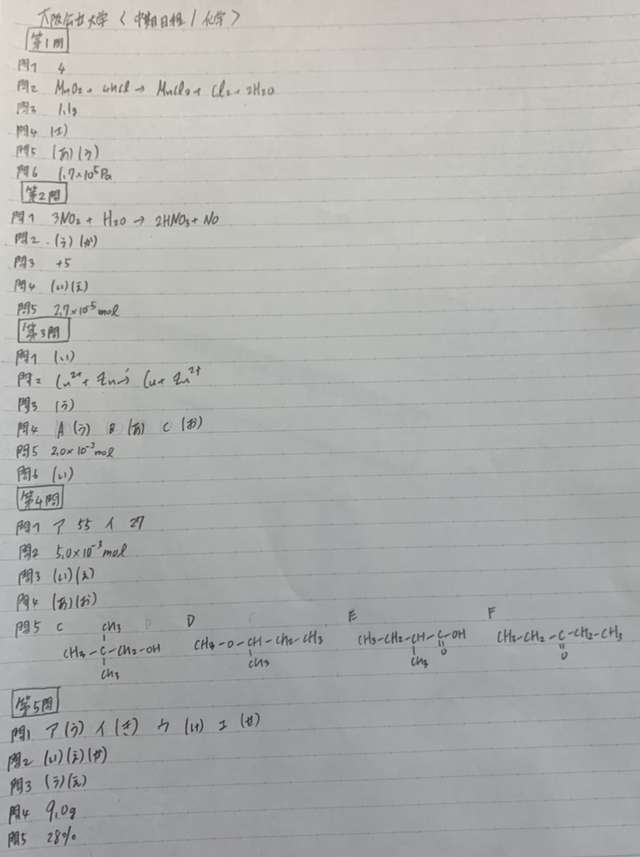 大阪公立大学 (中期日程/化学)
第1問
問1 4
問2 MnO2 + 4HCl → MnCl2 + Cl2 + 2H2O
問3 1.1g
問4 (え)
問5 (あ)(う)
問6 1.7×10⁵Pa
第2問
問1 3NO2 + H2O → 2HNO3 + NO
問2 (う)(か)
問3 +5
問4 (い)(え)
問5 2.7×10⁻⁵mol
第3問
問1 (い)
問2 Cu²⁺ + Zn → Cu + Zn²⁺
問3 (う)
問4 A (う) B (あ) C (お)
問5 2.0×10⁻³mol
問6 (い)
第4問
問1 ア 55 イ 27
問2 5.0×10⁻³mol
問3 (い)(え)
問4 (あ)(お)
問5 C D E F
CH3
CH3-C-CH2-OH CH3-O-CH-CH2-CH3 CH3-CH2-CH-C-OH CH3-CH2-C-CH2-CH3
CH3 CH3 CH3 O O
第5問
問1 ア(う) イ(き) ウ(け) エ(せ)
問2 (い)(え)(か)
問3 (う)(え)
問4 9.0g
問5 28%